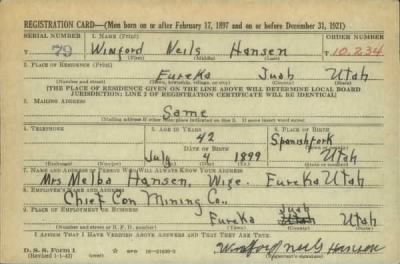 REGISTRATION CARD—(Men born on or after February 17, 1897 and on or before December 31, 1921)
SERIAL NUMBER 1. NAME (Print) ORDER NUMBER
T 79 Winford Neils Hansen T 10,234
(First) (Middle) (Last)
2. PLACE OF RESIDENCE (Print)
Eureka Juab Utah
(Number and street) (Town, township, village, or city) (County) (State)
[THE PLACE OF RESIDENCE GIVEN ON THE LINE ABOVE WILL DETERMINE LOCAL BOARD
JURISDICTION; LINE 2 OF REGISTRATION CERTIFICATE WILL BE IDENTICAL]
3. MAILING ADDRESS
Same
[Mailing address if other than place indicated on line 2. If same insert word same]
4. TELEPHONE 5. AGE IN YEARS 6. PLACE OF BIRTH
42 Spanish fork
DATE OF BIRTH (Town or county)
July 4 1899 Utah
(Exchange) (Number) (Mo.) (Day) (Yr.) (State or country)
7. NAME AND ADDRESS OF PERSON WHO WILL ALWAYS KNOW YOUR ADDRESS
Mrs Melba Hansen, Wife. Eureka Utah
8. EMPLOYER'S NAME AND ADDRESS
Chief Con Mining Co.,
9. PLACE OF EMPLOYMENT OR BUSINESS Juab
Eureka Utah Utah
(Number and street or R. F. D. number) (Town) (County) (State)
I AFFIRM THAT I HAVE VERIFIED ABOVE ANSWERS AND THAT THEY ARE TRUE.
D. S. S. Form 1 GPO 16—21630-2 Winford Neils Hansen
(Revised 1-1-42) (over) (Registrant's signature)